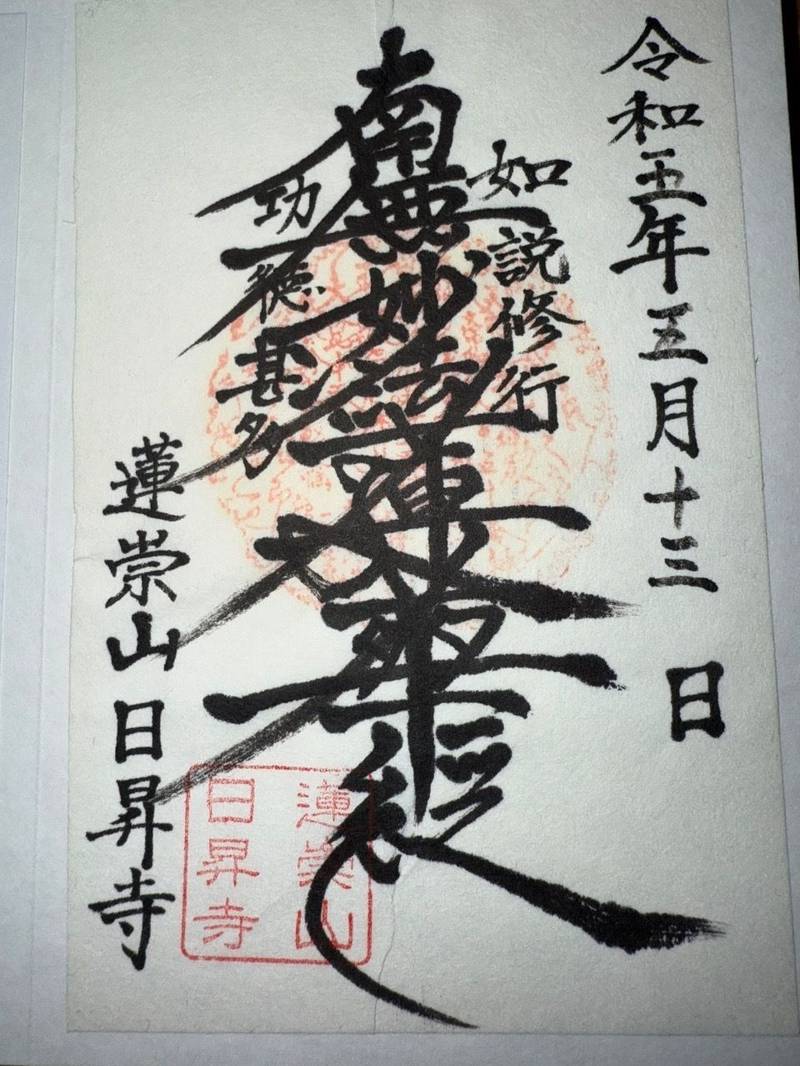 令和五年五月十三日
如説修行
南無妙法蓮華経
功徳甚多
蓮崇山日昇寺
蓮崇山
日昇寺